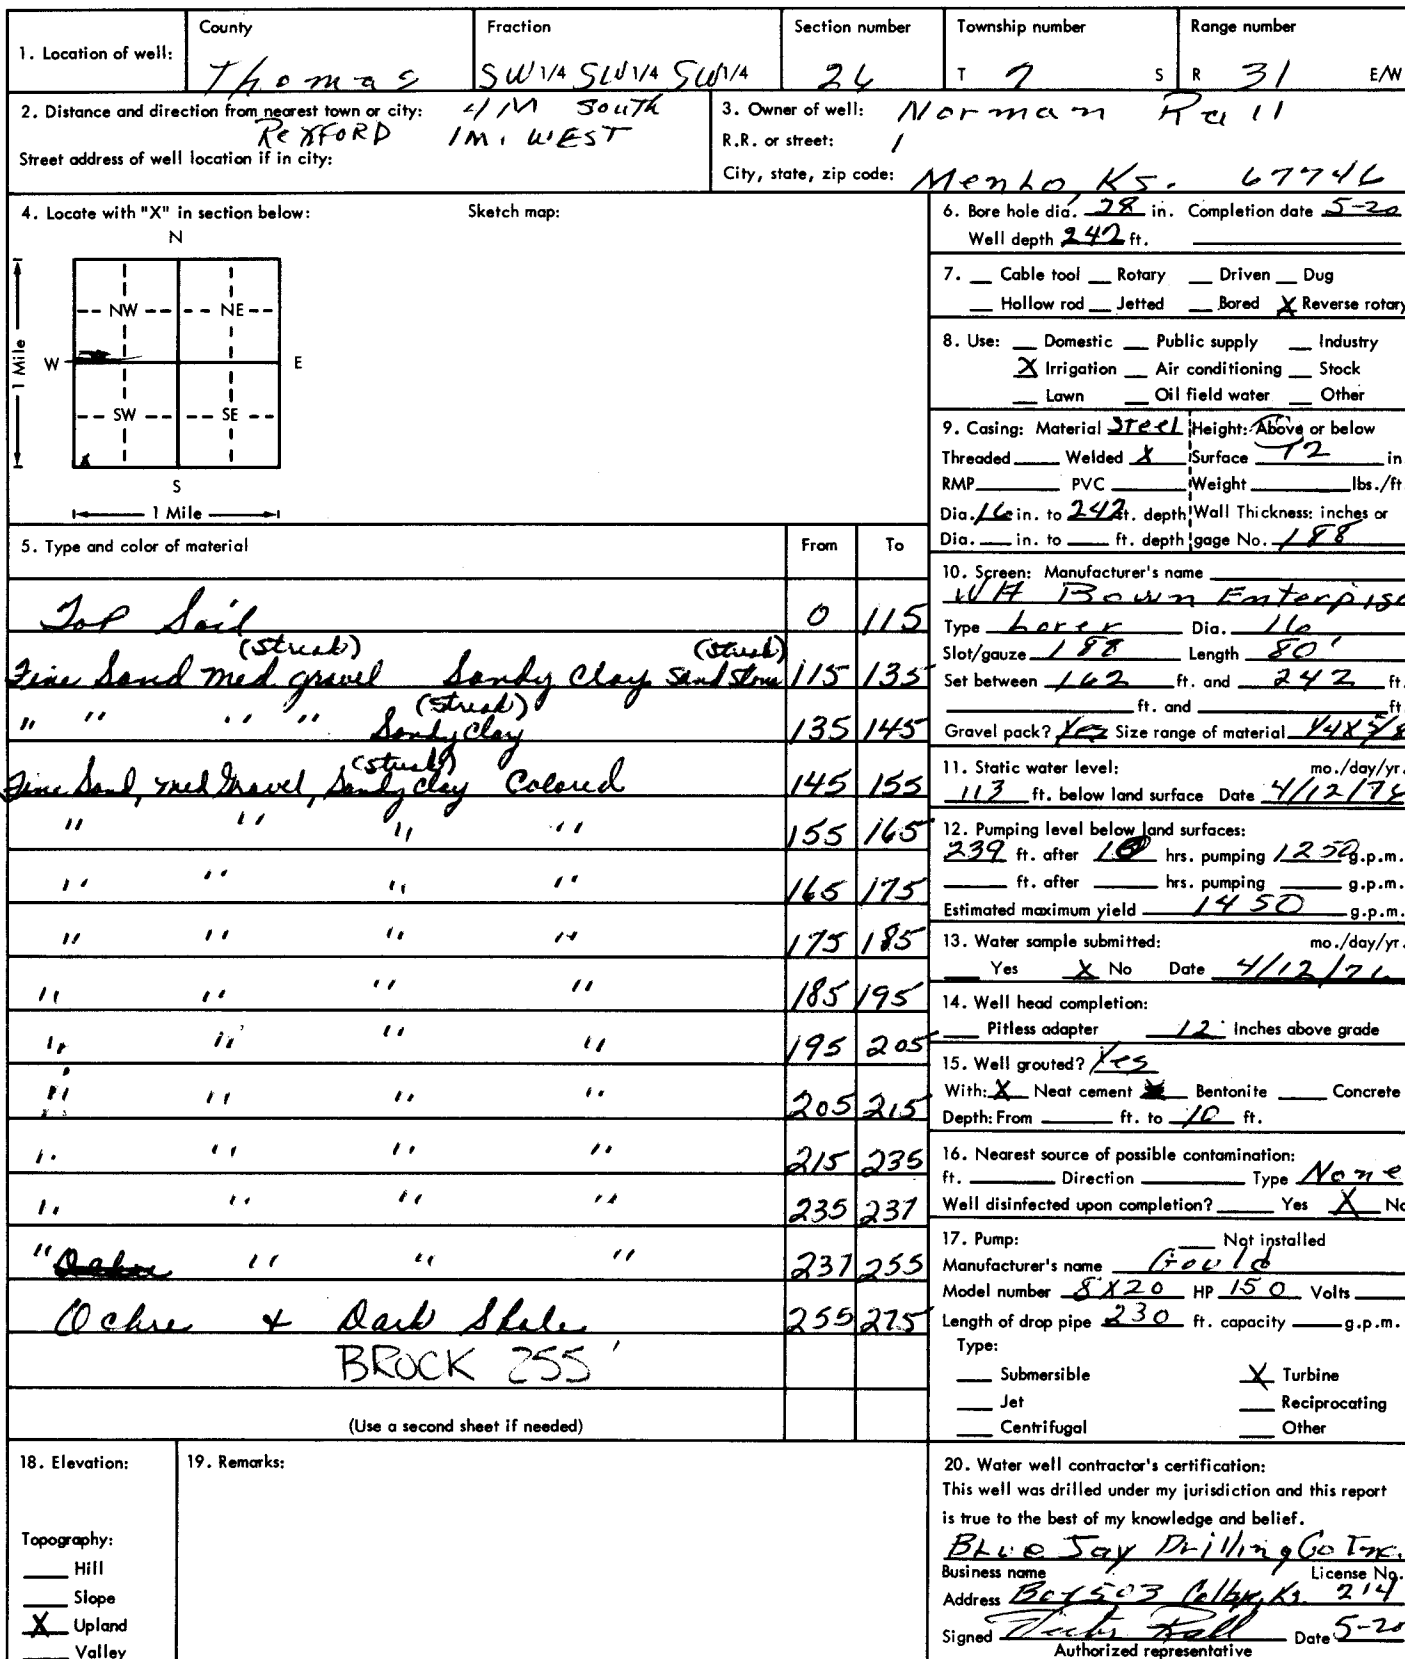 County Fraction Section number Township number Range number
1. Location of well: Thomas SW 1/4 SW 1/4 SW 1/4 26 T 7 S R 31 E/W
2. Distance and direction from nearest town or city: 4 M South
REXFORD 1 M. WEST
Street address of well location if in city:
3. Owner of well: Norman Rall
R.R. or street: 1
City, state, zip code: Menlo, Ks. 67746
4. Locate with "X" in section below: Sketch map:
N
NW NE
W E
SW SE
X
S
1 Mile
1 Mile
5. Type and color of material From To
Top Soil 0 115
(Streak) (Streak)
Fine Sand med gravel Sandy Clay Sand Stone 115 135
(Streak)
" " " " Sandy Clay 135 145
(Streak)
Fine Sand, med Gravel, Sandy Clay Colored 145 155
" " " " 155 165
" " " " 165 175
" " " " 175 185
" " " " 185 195
" " " " 195 205
" " " " 205 215
" " " " 215 235
" " " " 235 237
" " " " 237 255
Ochre & Dark Shale 255 275
BROCK 255'
(Use a second sheet if needed)
6. Bore hole dia. 28 in. Completion date 5-20
Well depth 242 ft.
7. Cable tool Rotary Driven Dug
Hollow rod Jetted Bored X Reverse rotary
8. Use: Domestic Public supply Industry
X Irrigation Air conditioning Stock
Lawn Oil field water Other
9. Casing: Material Steel Height: Above or below
Threaded Welded X Surface 12 in.
RMP PVC Weight lbs./ft
Dia. 16 in. to 242 ft. depth Wall Thickness: inches or
Dia. in. to ft. depth gage No. 188
10. Screen: Manufacturer's name
WH Bown Enterpise
Type Lover Dia. 16
Slot/gauze 188 Length 80'
Set between 162 ft. and 242 ft.
ft. and ft.
Gravel pack? Yes Size range of material 1/4 X 5/8
11. Static water level: mo./day/yr.
113 ft. below land surface Date 4/12/76
12. Pumping level below land surfaces:
239 ft. after 10 hrs. pumping 1250 g.p.m.
ft. after hrs. pumping g.p.m.
Estimated maximum yield 1450 g.p.m.
13. Water sample submitted: mo./day/yr.
Yes X No Date 4/12/76
14. Well head completion:
Pitless adapter 12 Inches above grade
15. Well grouted? Yes
With: X Neat cement Bentonite Concrete
Depth: From ft. to 10 ft.
16. Nearest source of possible contamination:
ft. Direction Type None
Well disinfected upon completion? Yes X No
17. Pump: Not installed
Manufacturer's name Gould
Model number 8X20 HP 150 Volts
Length of drop pipe 230 ft. capacity g.p.m.
Type:
Submersible X Turbine
Jet Reciprocating
Centrifugal Other
18. Elevation:
Topography:
Hill
Slope
X Upland
Valley
19. Remarks:
20. Water well contractor's certification:
This well was drilled under my jurisdiction and this report
is true to the best of my knowledge and belief.
BLue Jay Drilling Co Inc.
Business name License No.
Address Box 503 Colby, Ks. 214
Signed Rall Date 5-20
Authorized representative